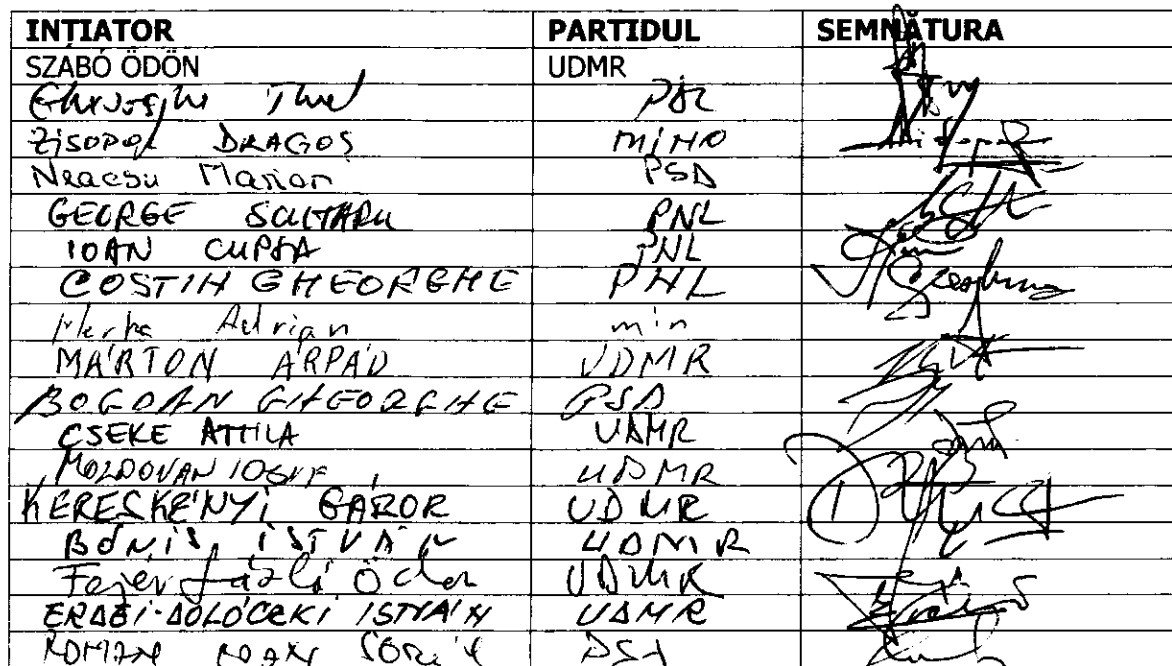 INTIATOR PARTIDUL SEMNĂTURA
SZABÓ ÖDÖN UDMR
ZISOPOL DRAGOȘ MINO
Neacsu Marian PSD
GEORGE SCUTARU PNL
IOAN CUPȘA PNL
COSTIN GHEORGHE PNL
Merka Adrian min
MÁRTON ÁRPÁD UDMR
BOGDAN GHEORGHE PSD
CSEKE ATTILA UDMR
MOLDOVAN IOSIF UDMR
KERESKÉNYI GÁBOR UDMR
BÓNIS ISTVÁN UDMR
Fejér László Ödön UDMR
ERDEI-DOLÓCZKI ISTVÁN UDMR
ROMAN IOAN SORIN PSD